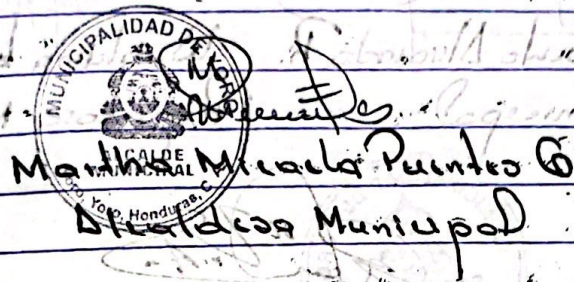 MUNICIPALIDAD DE YORO
ALCALDE
MUNICIPAL
Yoro, Honduras, C.A.
Martha Micaela Puentes G
Alcaldesa Municipal